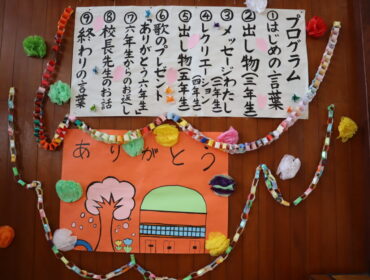 プログラム
①はじめの言葉
②出し物(三年生)
③メッセージわたし(二年生)
④レクリエーション(四年生)
⑤出し物(五年生)
⑥歌のプレゼント
「ありがとう六年生」
⑦六年生からのお返し
⑧校長先生のお話
⑨終わりの言葉
ありがとう